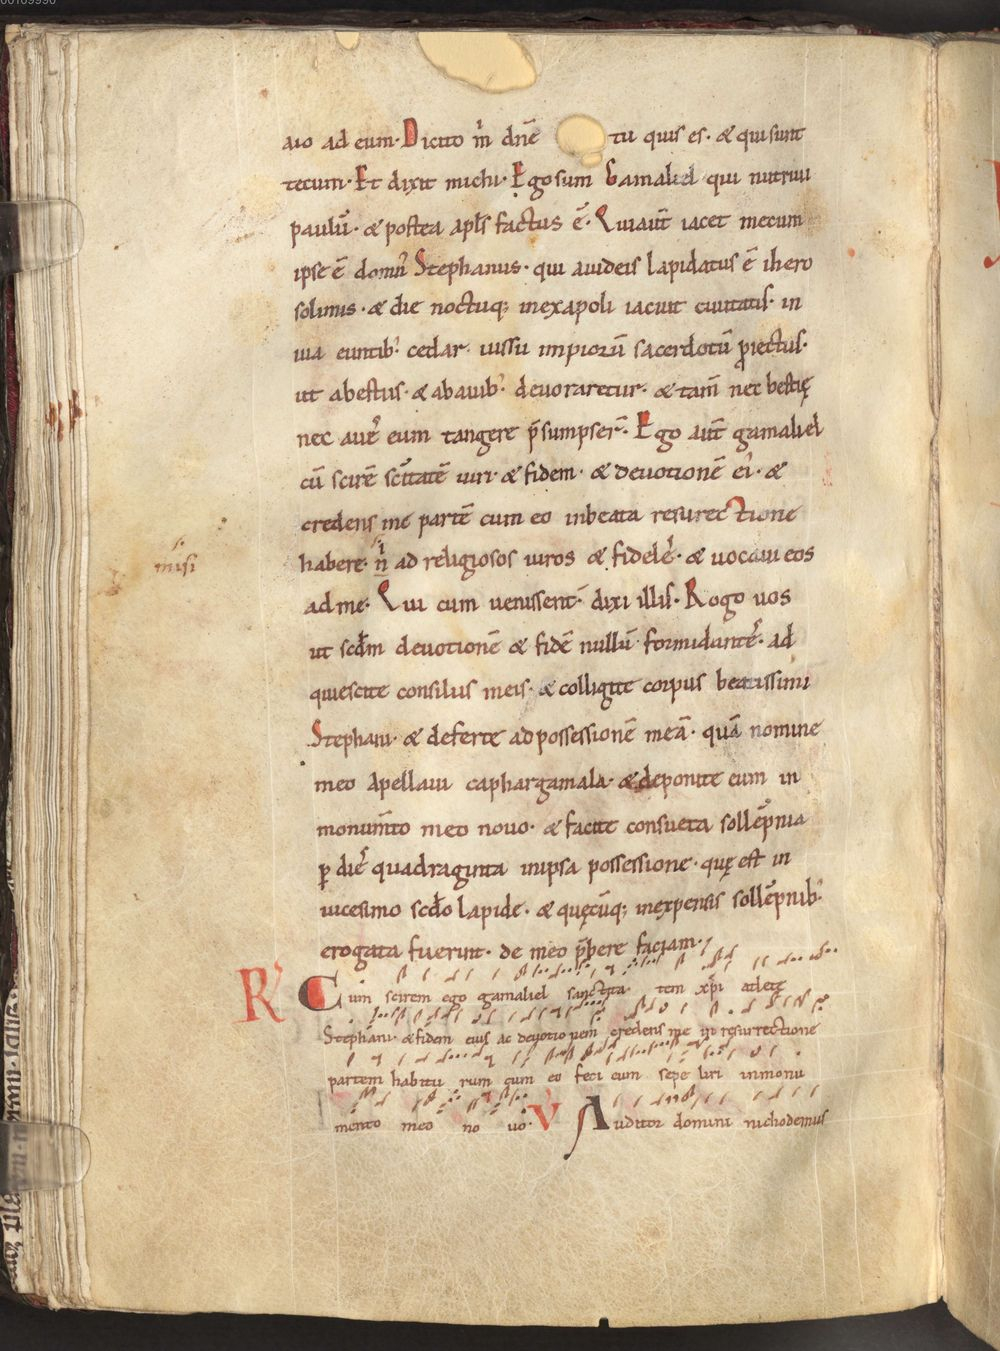 aio ad eum. Dicito m̄ dn̄e tu quis es. & qui sunt
tecum. Et dixit michi. Ego sum Gamaliel qui nutriui
paulū. & postea apl's factus ē. Qui aut̄ iacet mecum
ipse ē domn' Stephanus. qui a iudeis lapidatus ē ihero
solimis. & die noctuq; in exapoli iacuit ciuitatis. in
uia euntib' cedar. iussu impiorū sacerdotū ꝓiectus.
ut a bestiis. & ab auib' deuoraretur. & tam̄ nec bestię
nec aues eum tangere p̄sumpser̄. Ego aut̄ gamaliel
cū scirē sc̄itatē uiri. & fidem. & deuotionē ei'. &
credens me partē cum eo in beata resurrectione
habere. ad religiosos uiros & fideles. & uocaui eos
misi
ad me. Qui cum uenissent. dixi illis. Rogo uos
ut scdm deuotionē & fidē nullū formidantes. ad
quiescite consiliis meis. & colligite corpus beatissimi
Stephani. & deferte ad possessionē meā. quā nomine
meo apellaui caphargamala. & deponite eum in
monum̄to meo nouo. & facite consueta sollēpnia
ꝑ dies quadraginta in ipsa possessione. quę est in
uicesimo scdo lapide. & quęcūq; in expensis sollēpnib'
erogata fuerint. de meo p̄bere faciam.
R' Cum scirem ego gamaliel sanctita tem xp̄i atletę
Stephani. & fidem eius ac deuotio nem credens me in resurrectione
partem habitu rum cum eo feci eum sepe liri in monu
mento meo no uo. V' Auditor domini nichodemus